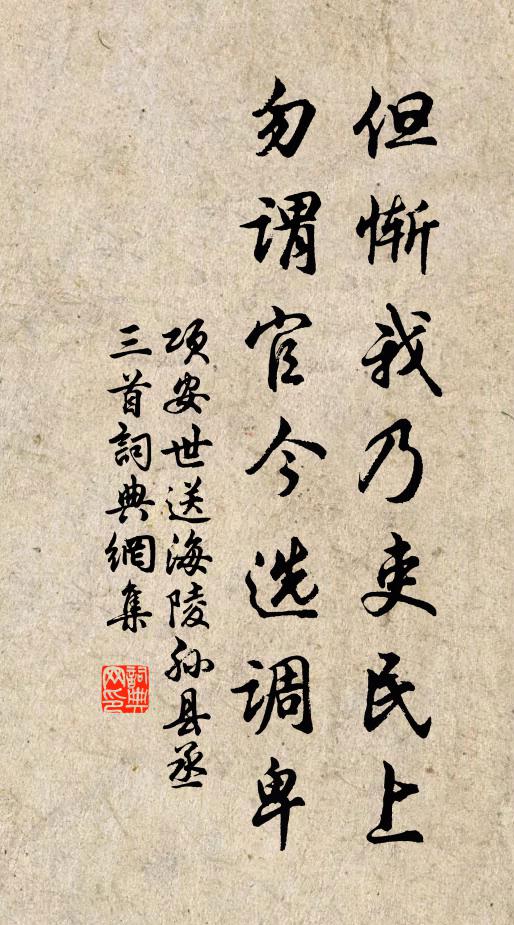 但慚我乃吏民上
勿谓官今选调卑
项安世送海陵孙县丞
三首詞典網集
詞典
网印